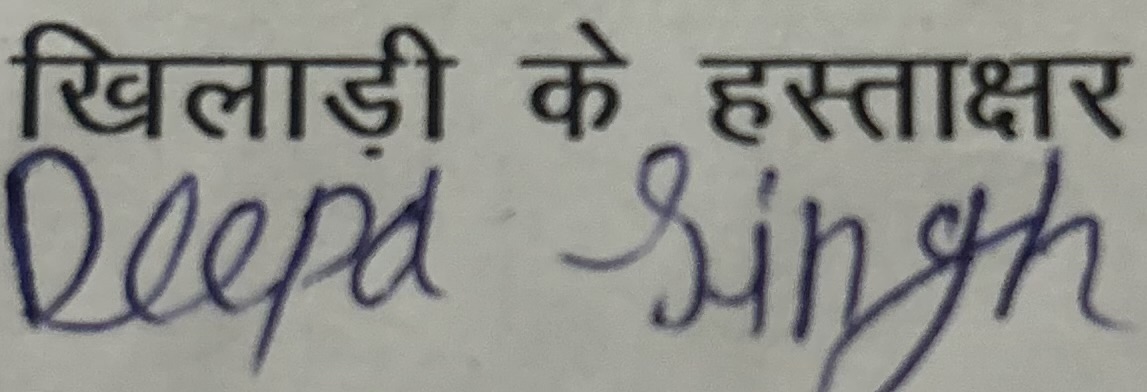 खिलाड़ी के हस्ताक्षर
Deepa Singh